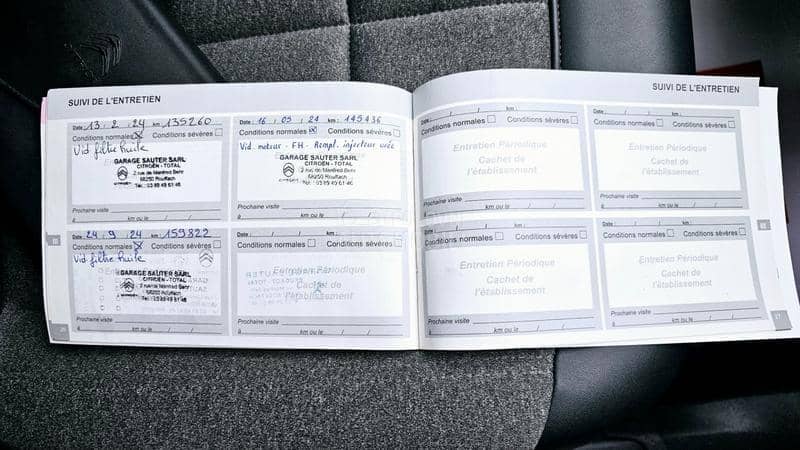 SUIVI DE L'ENTRETIEN
Date : 13 . 2 . 24 km : 135260
Conditions normales Conditions sévères
Vid filtre huile
GARAGE SAUTER SARL
CITROËN - TOTAL
2 rue de Manfred Behr
68250 Rouffach
Tél. : 03 89 49 61 46
Prochaine visite
à km ou le / /
Date : 16 . 05 . 24 km : 145436
Conditions normales Conditions sévères
Vid. moteur - FH - Rempl. injecteur urée
GARAGE SAUTER SARL
CITROËN - TOTAL
2 rue de Manfred Behr
68250 Rouffach
Tél. : 03 89 49 61 46
Prochaine visite
à km ou le / /
Date : 24 . 9 . 24 km : 159822
Conditions normales Conditions sévères
Vid filtre huile
GARAGE SAUTER SARL
CITROËN - TOTAL
68250 Rouffach
Tél. : 03 89 49 61 46
Prochaine visite
à km ou le / /
Date : / / km :
Conditions normales Conditions sévères
Entretien Périodique
Cachet de
l'établissement
Prochaine visite
à km ou le / /
SUIVI DE L'ENTRETIEN
Date : / / km :
Conditions normales Conditions sévères
Entretien Périodique
Cachet de
l'établissement
Prochaine visite
à km ou le / /
Date : / / km :
Conditions normales Conditions sévères
Entretien Périodique
Cachet de
l'établissement
Prochaine visite
à km ou le / /
Date : / / km :
Conditions normales Conditions sévères
Entretien Périodique
Cachet de
l'établissement
Prochaine visite
à km ou le / /
Date : / / km :
Conditions normales Conditions sévères
Entretien Périodique
Cachet de
l'établissement
Prochaine visite
à km ou le / /